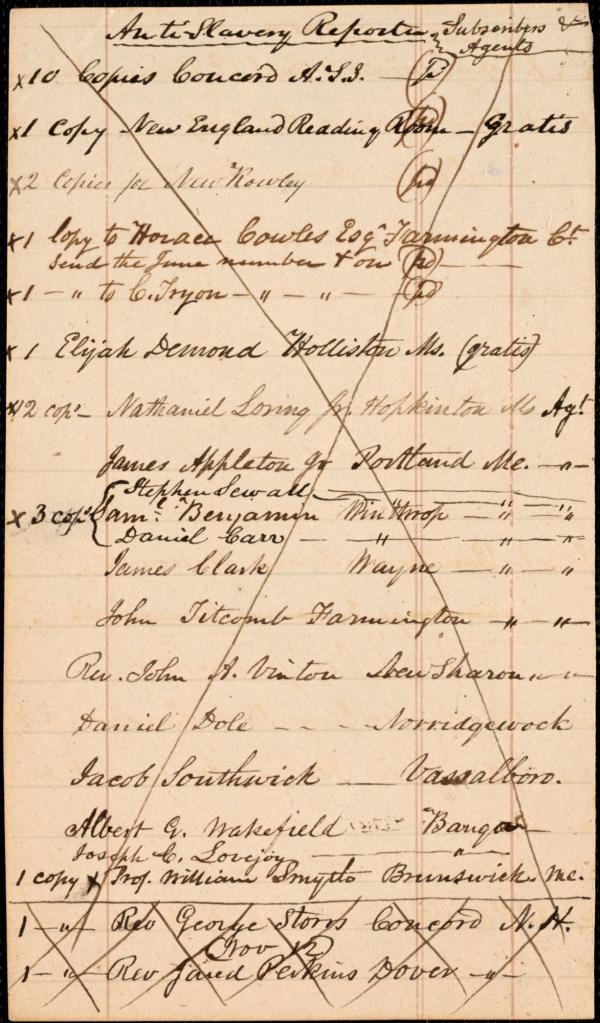 Anti-Slavery Reporter, Subscribers &
Agents
x 10 Copies Concord A.S.S. — pd
x 1 Copy New England Reading Room — Gratis
x 2 Copies for New Rowley pd
x 1 Copy to Horace Cowles Esqr Farmington Ct.
Send the June number & on pd
x 1 — " to C. Tryon — " — " — pd
x 1 Elijah Demond Holliston Ms. (gratis)
x 12 cops — Nathaniel Loring Jr. Hopkinton Ms Agt
James Appleton Portland Me. — " —
Stephen Sewall — " — "
x 3 cops Saml. Benjamin Winthrop — " — "
Daniel Carr — " — " — "
James Clark Wayne — " — "
John Titcomb Farmington — " — " —
Rev. John A. Vinton New Sharon " — " —
Daniel Dole — — — Norridgewock
Jacob Southwick — Vassalboro.
Albert G. Wakefield Bangor
Joseph C. Lovejoy — " —
1 copy x Prof. William Smyth Brunswick Me.
1 — " — Rev George Storrs Concord N. H.
(Nov 12)
1 — " — Rev Jared Perkins Dover — " —